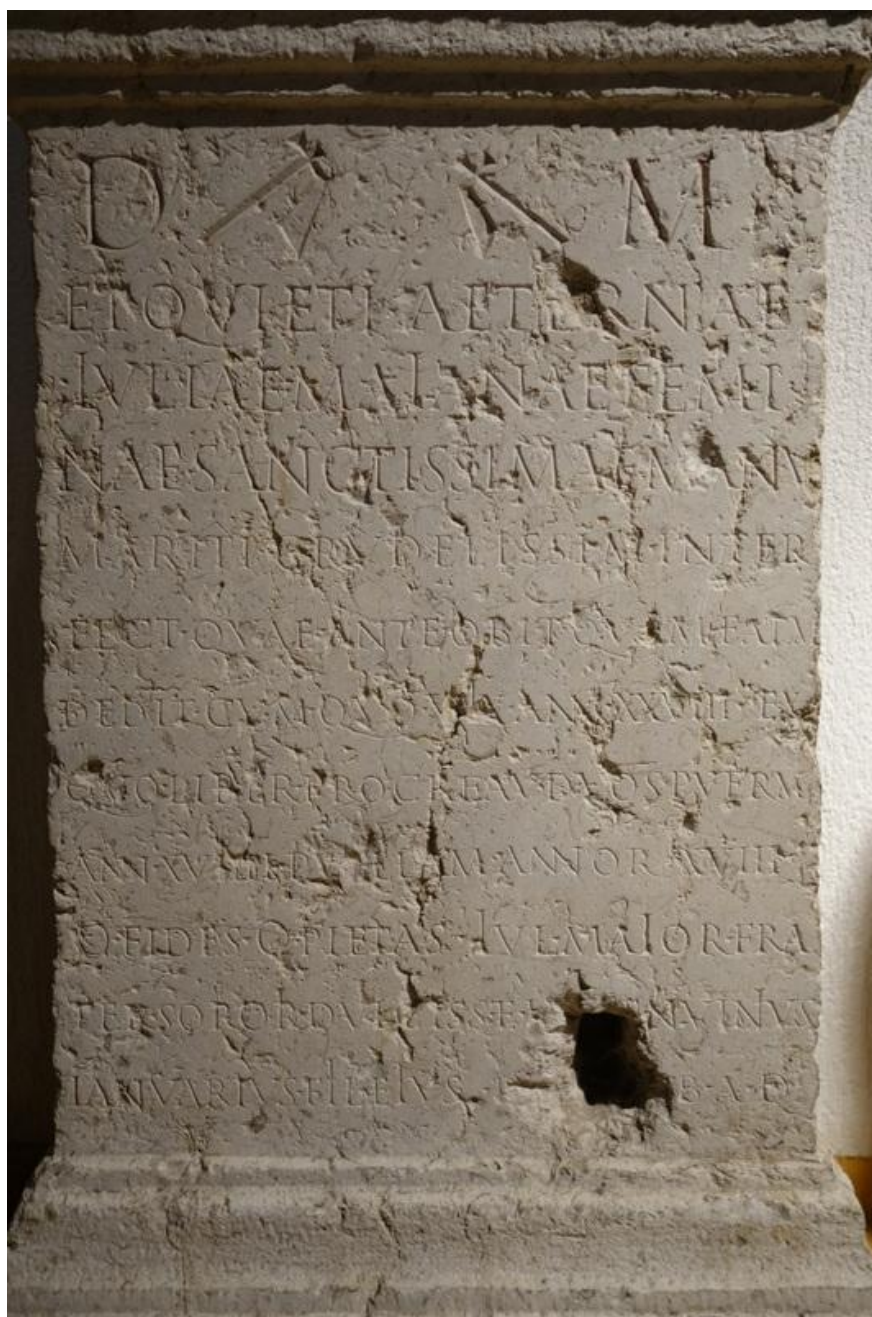 D M
ET QVIETI AETERNAE
IVLIAE MAIANAE FEMI
NAE SANCTISSIMAE MANV
MARITI CRVDELISSIM INTER
FECT QVAE ANTE OBIT QVAM FATVM
DEDIT CVM QVO VIX ANN XXVIII EX
QVO LIBER PROCREAV DVOS PVERVM
ANN XVIIII PVELLAM ANNOR XVIII
O FIDES O PIETAS IVL MAIOR FRA
TER SOROR DVLCISS ET
IANVARIVS FIL EIVS B A D